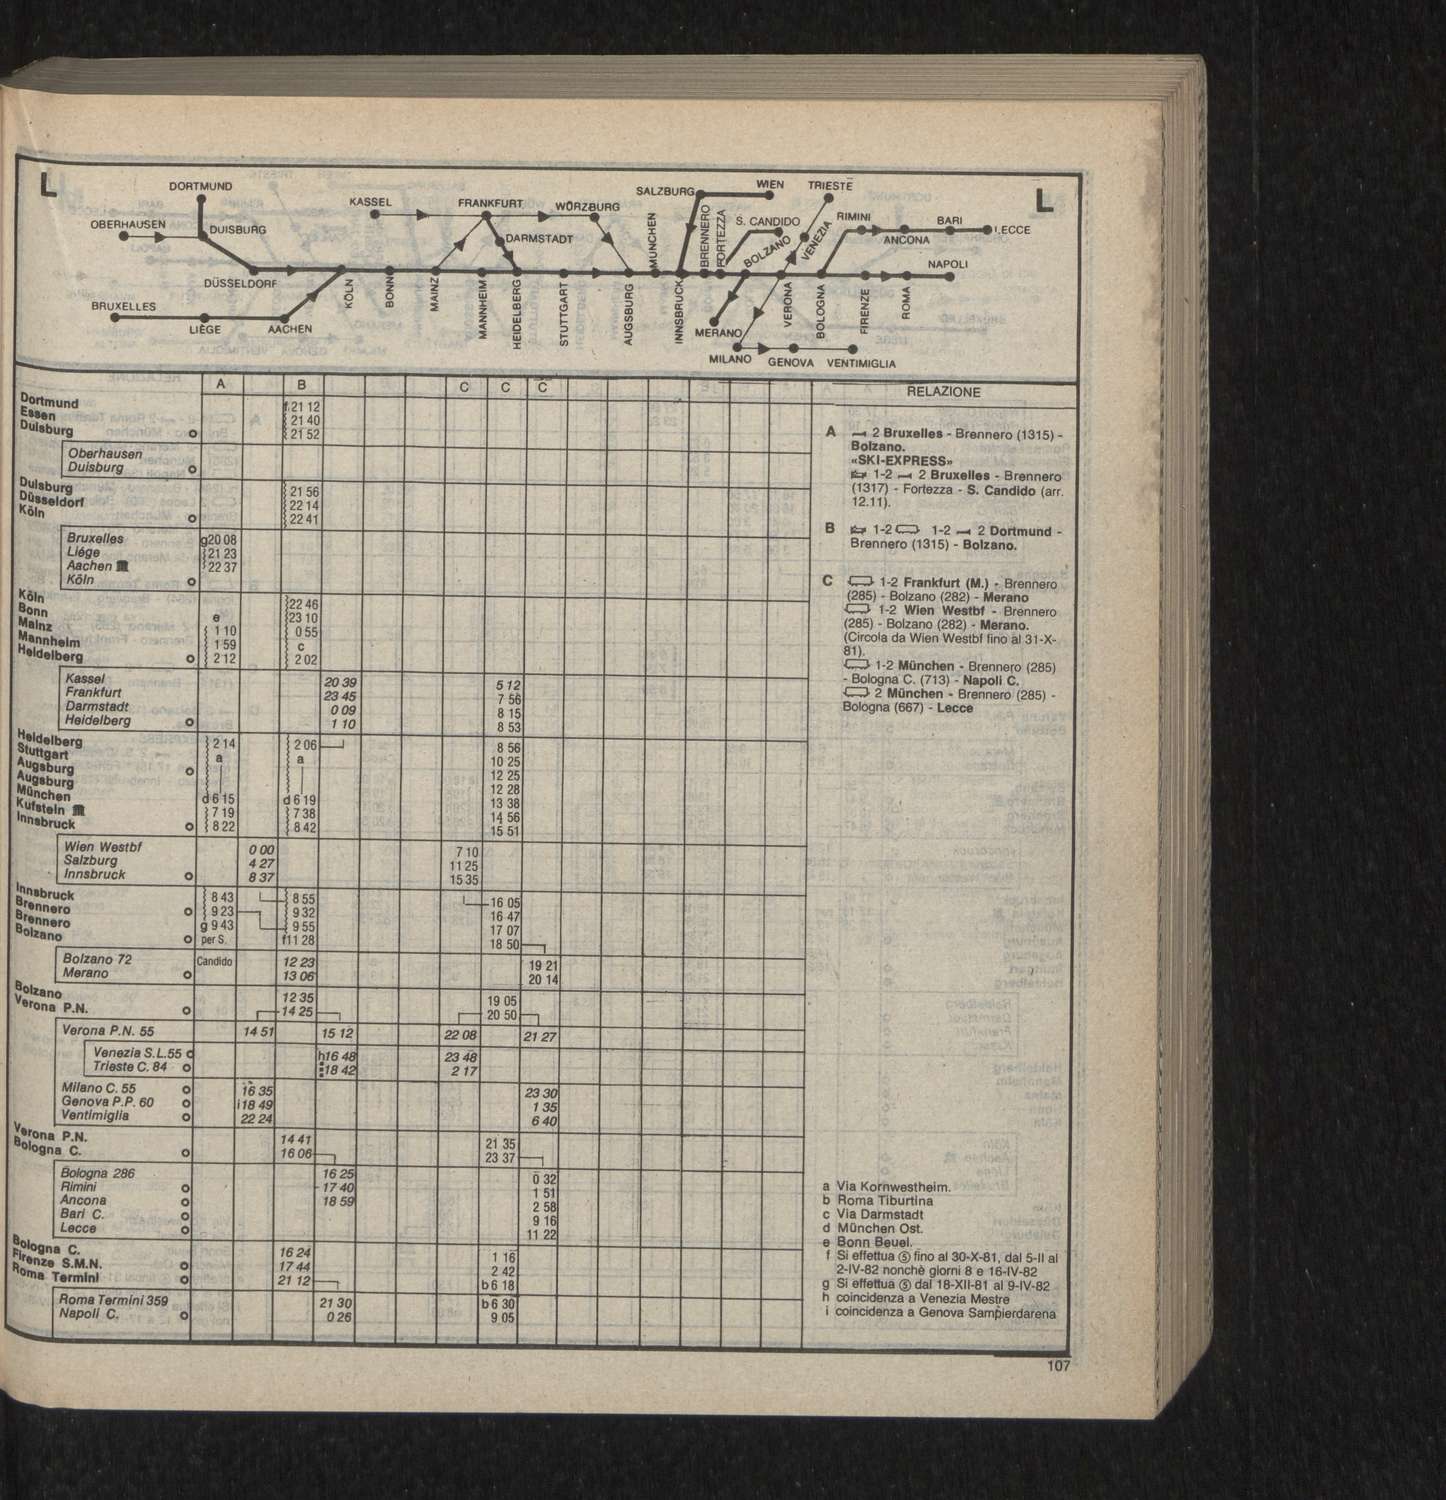 L
L
DORTMUND
OBERHAUSEN
DUISBURG
DÜSSELDORF
BRUXELLES
LIÈGE
AACHEN
KÖLN
BONN
MAINZ
KASSEL
FRANKFURT
WÜRZBURG
DARMSTADT
MANNHEIM
HEIDELBERG
STUTTGART
AUGSBURG
MÜNCHEN
SALZBURG
WIEN
INNSBRUCK
BRENNERO
FORTEZZA
S. CANDIDO
BOLZANO
MERANO
TRIESTE
VENEZIA
VERONA
MILANO
GENOVA
VENTIMIGLIA
BOLOGNA
RIMINI
ANCONA
BARI
LECCE
FIRENZE
ROMA
NAPOLI
A B C C C RELAZIONE
Dortmund f 21 12
Essen 21 40
Duisburg 21 52
Oberhausen
Duisburg
Duisburg 21 56
Düsseldorf 22 14
Köln 22 41
Bruxelles g20 08
Liége 21 23
Aachen 22 37
Köln
Köln 22 46
Bonn e 23 10
Mainz 1 10 0 55
Mannheim 1 59 c
Heidelberg 2 12 2 02
Kassel 20 39 5 12
Frankfurt 23 45 7 56
Darmstadt 0 09 8 15
Heidelberg 1 10 8 53
Heidelberg 2 14 2 06 8 56
Stuttgart a a 10 25
Augsburg 12 25
Augsburg 12 28
München d 6 15 d 6 19 13 38
Kufstein 7 19 7 38 14 56
Innsbruck 8 22 8 42 15 51
Wien Westbf 0 00 7 10
Salzburg 4 27 11 25
Innsbruck 8 37 15 35
Innsbruck 8 43 8 55 16 05
Brennero 9 23 9 32 16 47
Brennero g 9 43 9 55 17 07
Bolzano per S. f11 28 18 50
Bolzano 72 Candido 12 23 19 21
Merano 13 06 20 14
Bolzano 12 35 19 05
Verona P.N. 14 25 20 50
Verona P.N. 55 14 51 15 12 22 08 21 27
Venezia S.L.55 h16 48 23 48
Trieste C. 84 18 42 2 17
Milano C. 55 16 35 23 30
Genova P.P. 60 i18 49 1 35
Ventimiglia 22 24 6 40
Verona P.N. 14 41 21 35
Bologna C. 16 06 23 37
Bologna 286 16 25 0 32
Rimini 17 40 1 51
Ancona 18 59 2 58
Bari C. 9 16
Lecce 11 22
Bologna C. 16 24 1 16
Firenze S.M.N. 17 44 2 42
Roma Termini 21 12 b 6 18
Roma Termini 359 21 30 b 6 30
Napoli C. 0 26 9 05
A 2 Bruxelles - Brennero (1315) -
Bolzano.
«SKI-EXPRESS»
1-2 2 Bruxelles - Brennero
(1317) - Fortezza - S. Candido (arr.
12.11).
B 1-2 1-2 2 Dortmund -
Brennero (1315) - Bolzano.
C 1-2 Frankfurt (M.) - Brennero
(285) - Bolzano (282) - Merano
1-2 Wien Westbf - Brennero
(285) - Bolzano (282) - Merano.
(Circola da Wien Westbf fino al 31-X-
81).
1-2 München - Brennero (285)
- Bologna C. (713) - Napoli C.
2 München - Brennero (285) -
Bologna (667) - Lecce
a Via Kornwestheim.
b Roma Tiburtina
c Via Darmstadt
d München Ost.
e Bonn Beuel.
f Si effettua ⑤ fino al 30-X-81, dal 5-II al
2-IV-82 nonchè giorni 8 e 16-IV-82
g Si effettua ⑤ dal 18-XII-81 al 9-IV-82
h coincidenza a Venezia Mestre
i coincidenza a Genova Sampierdarena
107